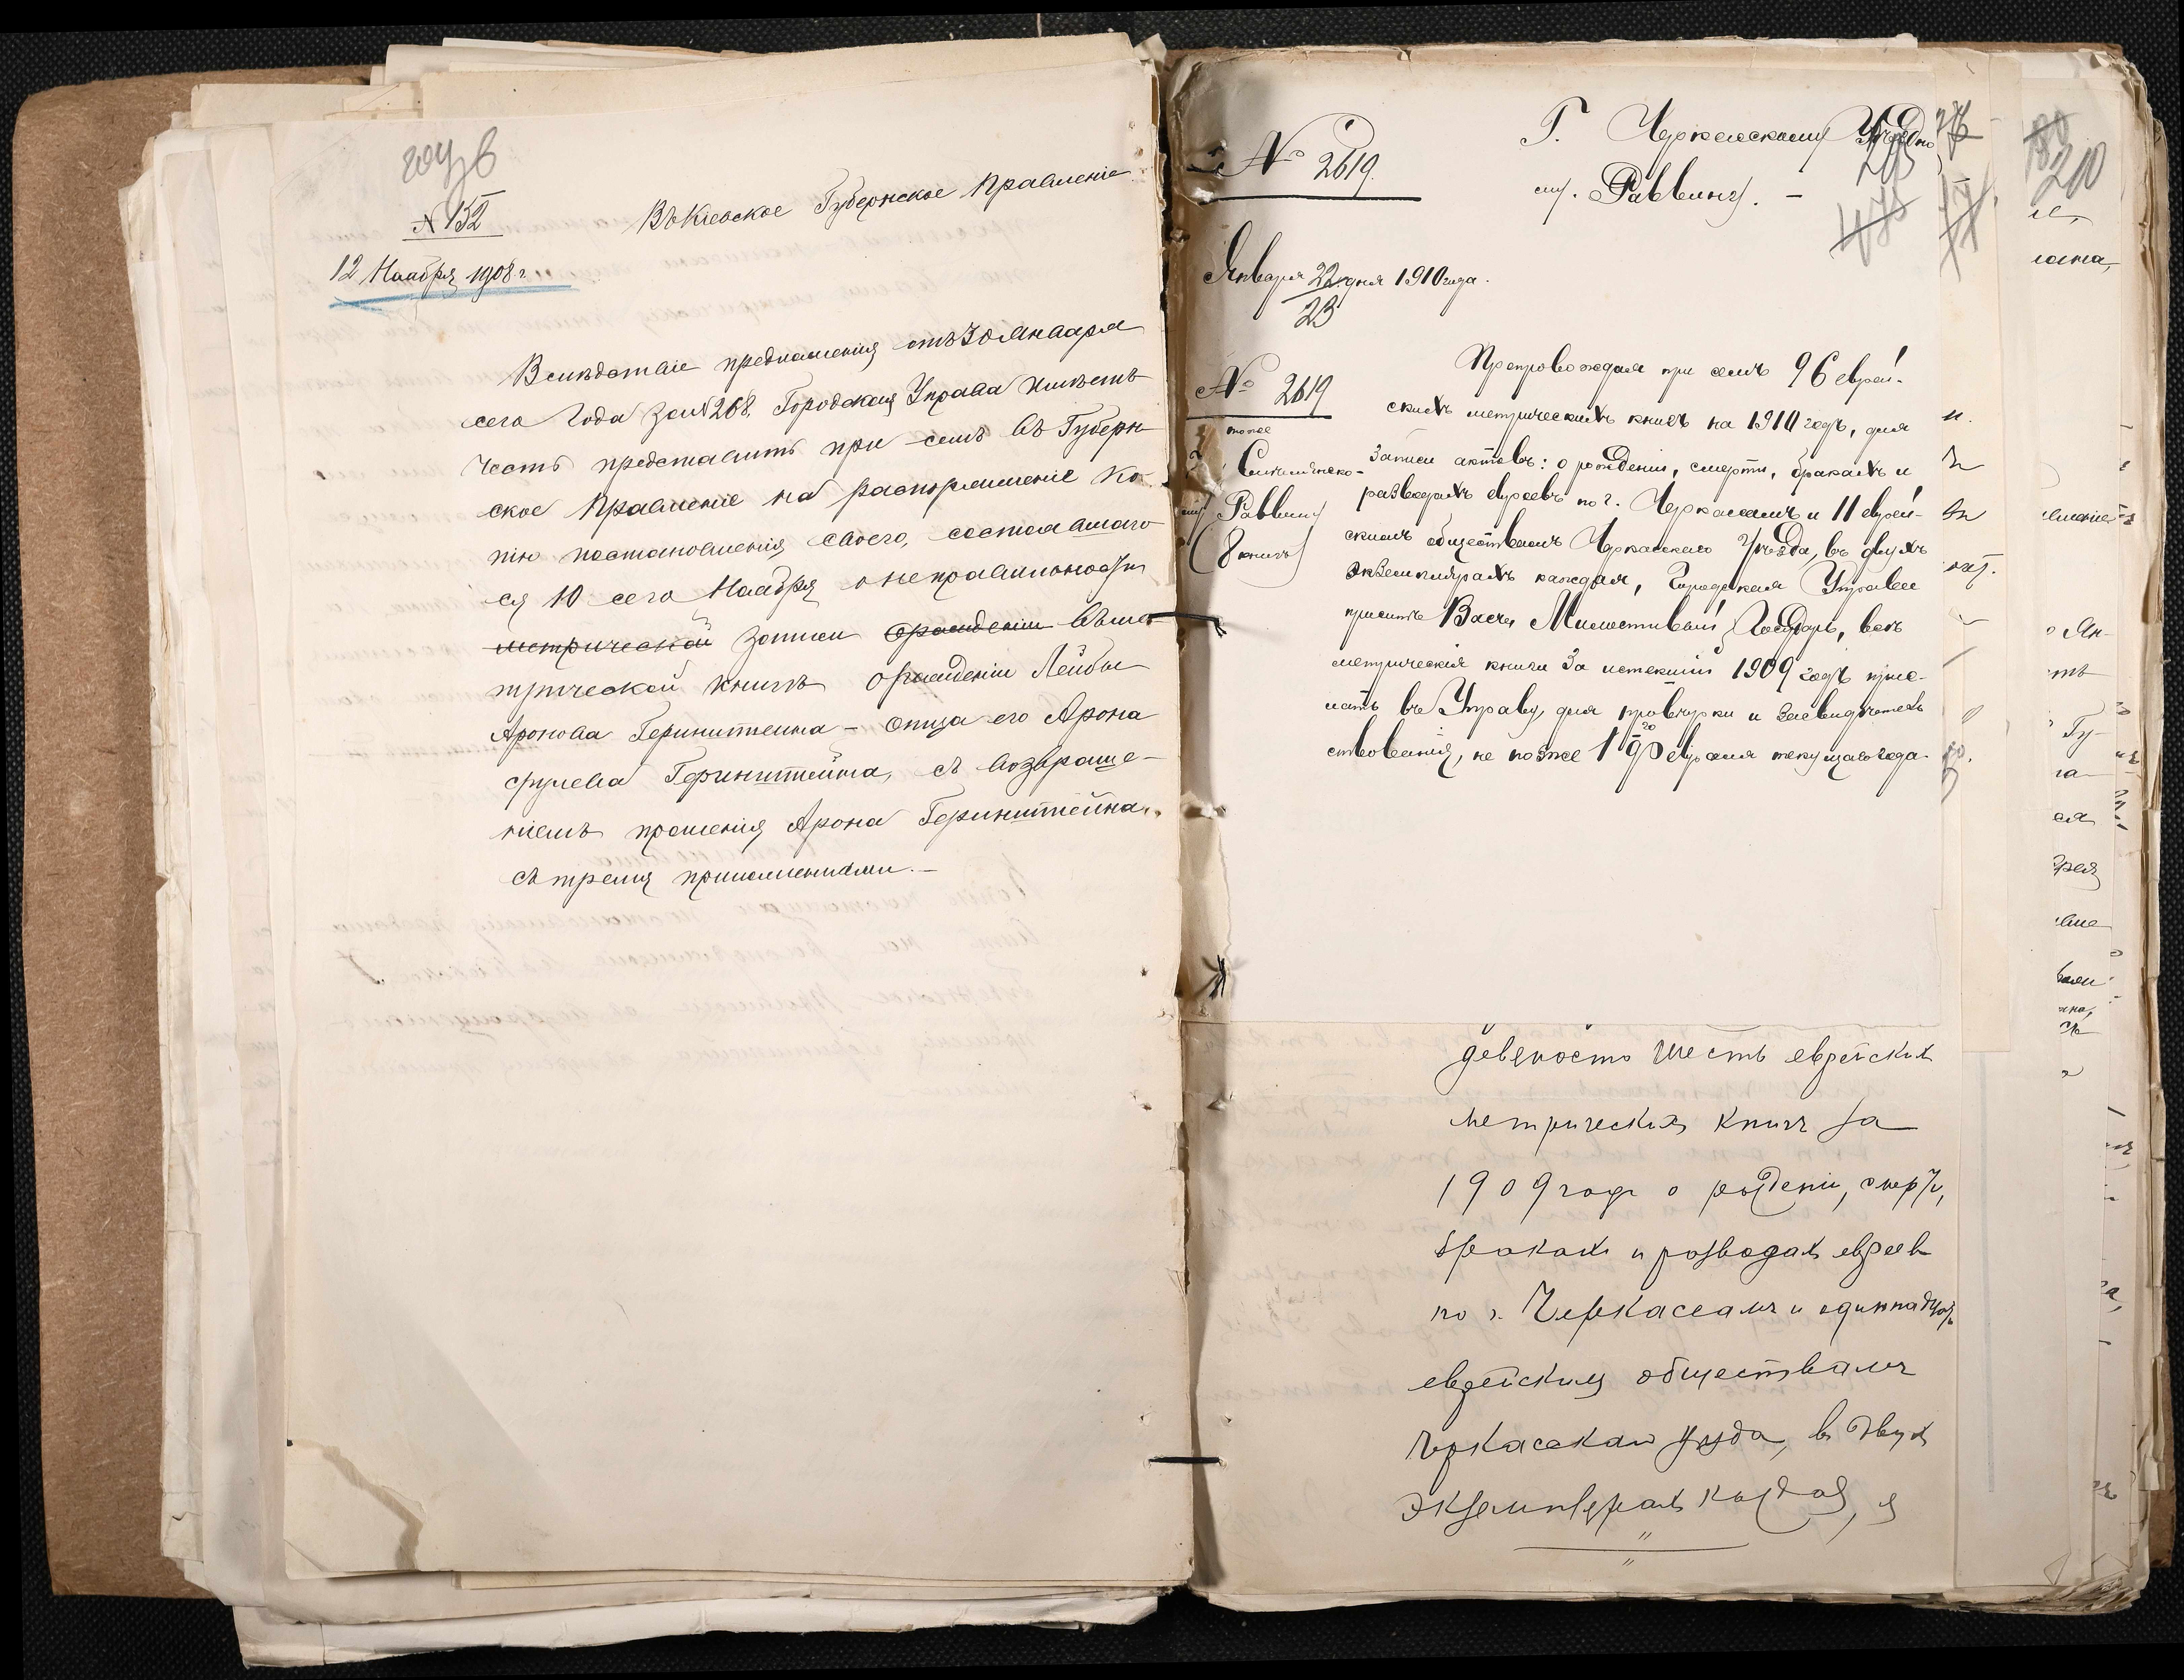 N 152
Въ Кіевское Губернское Правленіе
12 Ноября 1908 г.
Вслѣдствіе предложенія отъ 30 Января
сего года за № 268 Городская Управа имѣетъ
честь представить при семъ въ Губерн-
ское Правленіе на распоряженіе ко-
пію постановленія своего, состоявшаго-
ся 10 сего Ноября о неправильности
метрической записи о рожденіи въ ме-
трической книгѣ о рожденіи Лейбы
Аронова Геринштейна – отца его Арона
Срулева Геринштейна, съ возвраще-
ніемъ прошенія Арона Геринштейна
съ тремя приложеніями. –
№ 2619.
Г. Черкасскому Уѣздно
му. Раввину. –
Января 22 дня 1910 года.
23
Препровождая при семъ 96 еврей-
№ 2619
скихъ метрическихъ книгъ на 1910 годъ, для
тоже
записи актовъ: о рожденіи, смерти, бракахъ и
разводахъ евреевъ по г. Черкассамъ и 11 еврей-
му Раввину
скимъ обществамъ Черкасскаго Уѣзда, въ двухъ
(8 книгъ)
экземплярахъ каждая, Городская Управа
проситъ Васъ, Милостивый Государь, всѣ
метрическія книги за истекшій 1909 годъ присы-
лать въ Управу, для провѣрки и засвидѣтель
ствованія, не позже 19 Февраля текущаго года.
20
210
девяносто шесть еврейских
метрических книг за
1909 годъ о рожденіи, смерти,
бракахъ и разводах евреев
по г. Черкассамъ и одиннадцать
еврейскимъ обществамъ
Черкасскаго уѣзда, в двух
экземплярах каждая, я